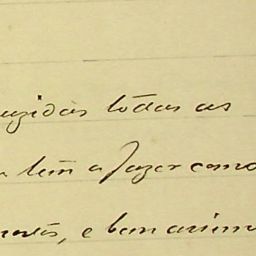 uzidas todas as
tem a fazer como
, e bem assim